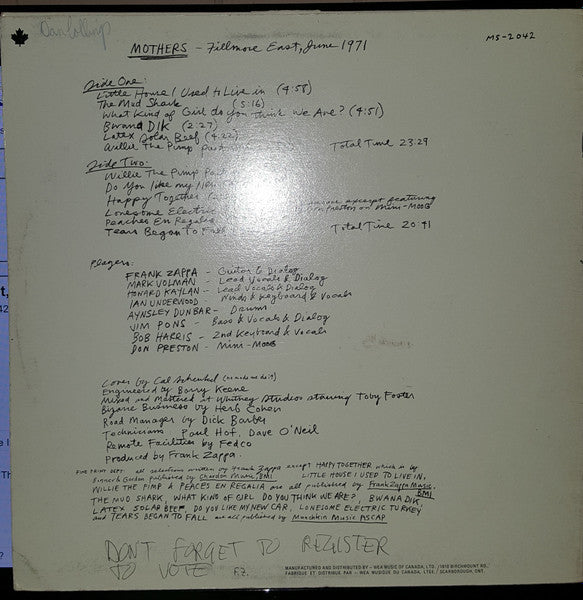 MOTHERS - Fillmore East, June 1971
MS-2042
Side One:
Little House I Used to Live in (4:58)
The Mud Shark (5:16)
What Kind of Girl do you Think we Are? (4:51)
Bwana DIK (2:27)
Latex Solar Beef (4:22)
Willie The Pimp Part
Total Time 23:29
Side Two:
Willie The Pimp Pa
Do You like my
Happy Together
excerpt featuring
Lonesome Electric
Preston on Mini-MOOG
Peaches En Regalia
Tears Began To Fall
Total Time 20:41
Players:
FRANK ZAPPA - Guitar & Dialog
MARK VOLMAN - Lead Vocals & Dialog
HOWARD KAYLAN - Lead Vocals & Dialog
IAN UNDERWOOD - Winds & Keyboard & Vocals
AYNSLEY DUNBAR - Drums
JIM PONS - Bass & Vocals & Dialog
BOB HARRIS - 2nd Keyboard & Vocals
DON PRESTON - Mini-MOOG
Cover by Cal Schenkel
Engineered by Barry Keene
Mixed and Mastered at Whitney Studios starring Toby Foster
Bizarre Business by Herb Cohen
Road Manager by Dick Barber
Technicians Paul Hof, Dave O'Neil
Remote Facilities by Fedco
Produced by Frank Zappa.
FINE PRINT DEPT: all selections written by Frank Zappa except HAPPY TOGETHER which is by
Bonner & Gordon published by Chardon Music, BMI LITTLE HOUSE I USED TO LIVE IN,
WILLIE THE PIMP & PEACES EN REGALIA are all published by Frank Zappa Music, BMI
THE MUD SHARK, WHAT KIND OF GIRL DO YOU THINK WE ARE?, BWANA DIK
LATEX SOLAR BEEF, DO YOU LIKE MY NEW CAR, LONESOME ELECTRIC TURKEY
and TEARS BEGAN TO FALL are all published by Munchkin Music ASCAP
DON'T FORGET TO REGISTER
TO VOTE F.Z.
MANUFACTURED AND DISTRIBUTED BY - WEA MUSIC OF CANADA, LTD. / 1810 BIRCHMOUNT RD.,
FABRIQUE ET DISTRIBUE PAR - WEA MUSIQUE DU CANADA, LTEE. / SCARBOROUGH, ONT.